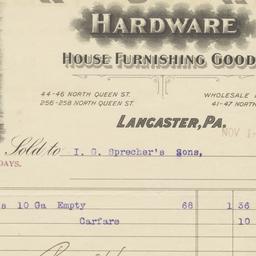 HARDWARE
HOUSE FURNISHING GOOD
44-46 NORTH QUEEN ST.
256-258 NORTH QUEEN ST.
WHOLESALE
41-47 NORTH
LANCASTER, PA.
NOV 1
Sold to I. G. Sprecher's Sons,
DAYS.
s 10 Ga Empty 68 1 36
Carfare 10